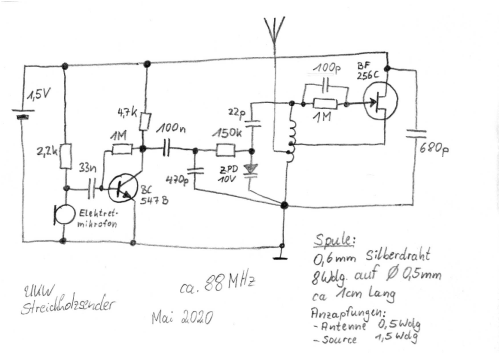 1,5V
2,2k
33n
Elektret-
mikrofon
1M
4,7k
BC
547B
100n
470p
150k
22p
ZPD
10V
100p
1M
BF
256C
680p
UKW
Streichholzsender
ca. 88MHz
Mai 2020
Spule:
0,6mm Silberdraht
8Wdg. auf Ø 0,5mm
ca 1cm Lang
Anzapfungen:
- Antenne 0,5Wdg
- Source 1,5Wdg